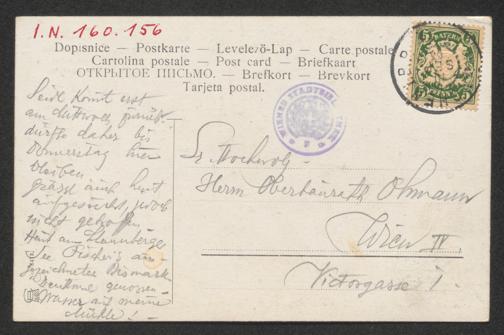 I.N. 160.156
Dopisnice — Postkarte — Levelező-Lap — Carte postale
Cartolina postale — Post card — Briefkaart
ОТКРЫТОЕ ПИСЬМО. — Brefkort — Brevkort
Tarjeta postal.
BAYERN
5 5
WIENER STADTBIBL
Seidl kommt erst
am Mittwoch zurück
dürfte daher bis
Donnerstag hier
bleiben
auch heut
aufgesucht, jedoch
nicht getroffen
Heut am Starnberger
See Fischer's aus-
gezeichnetes Bismark
Denkmal genossen —
Wasser auf meine
Mühle! —
Sr. Hochwolg.
Herrn Oberbaurath Ohmann
Wien IV.
Victorgasse